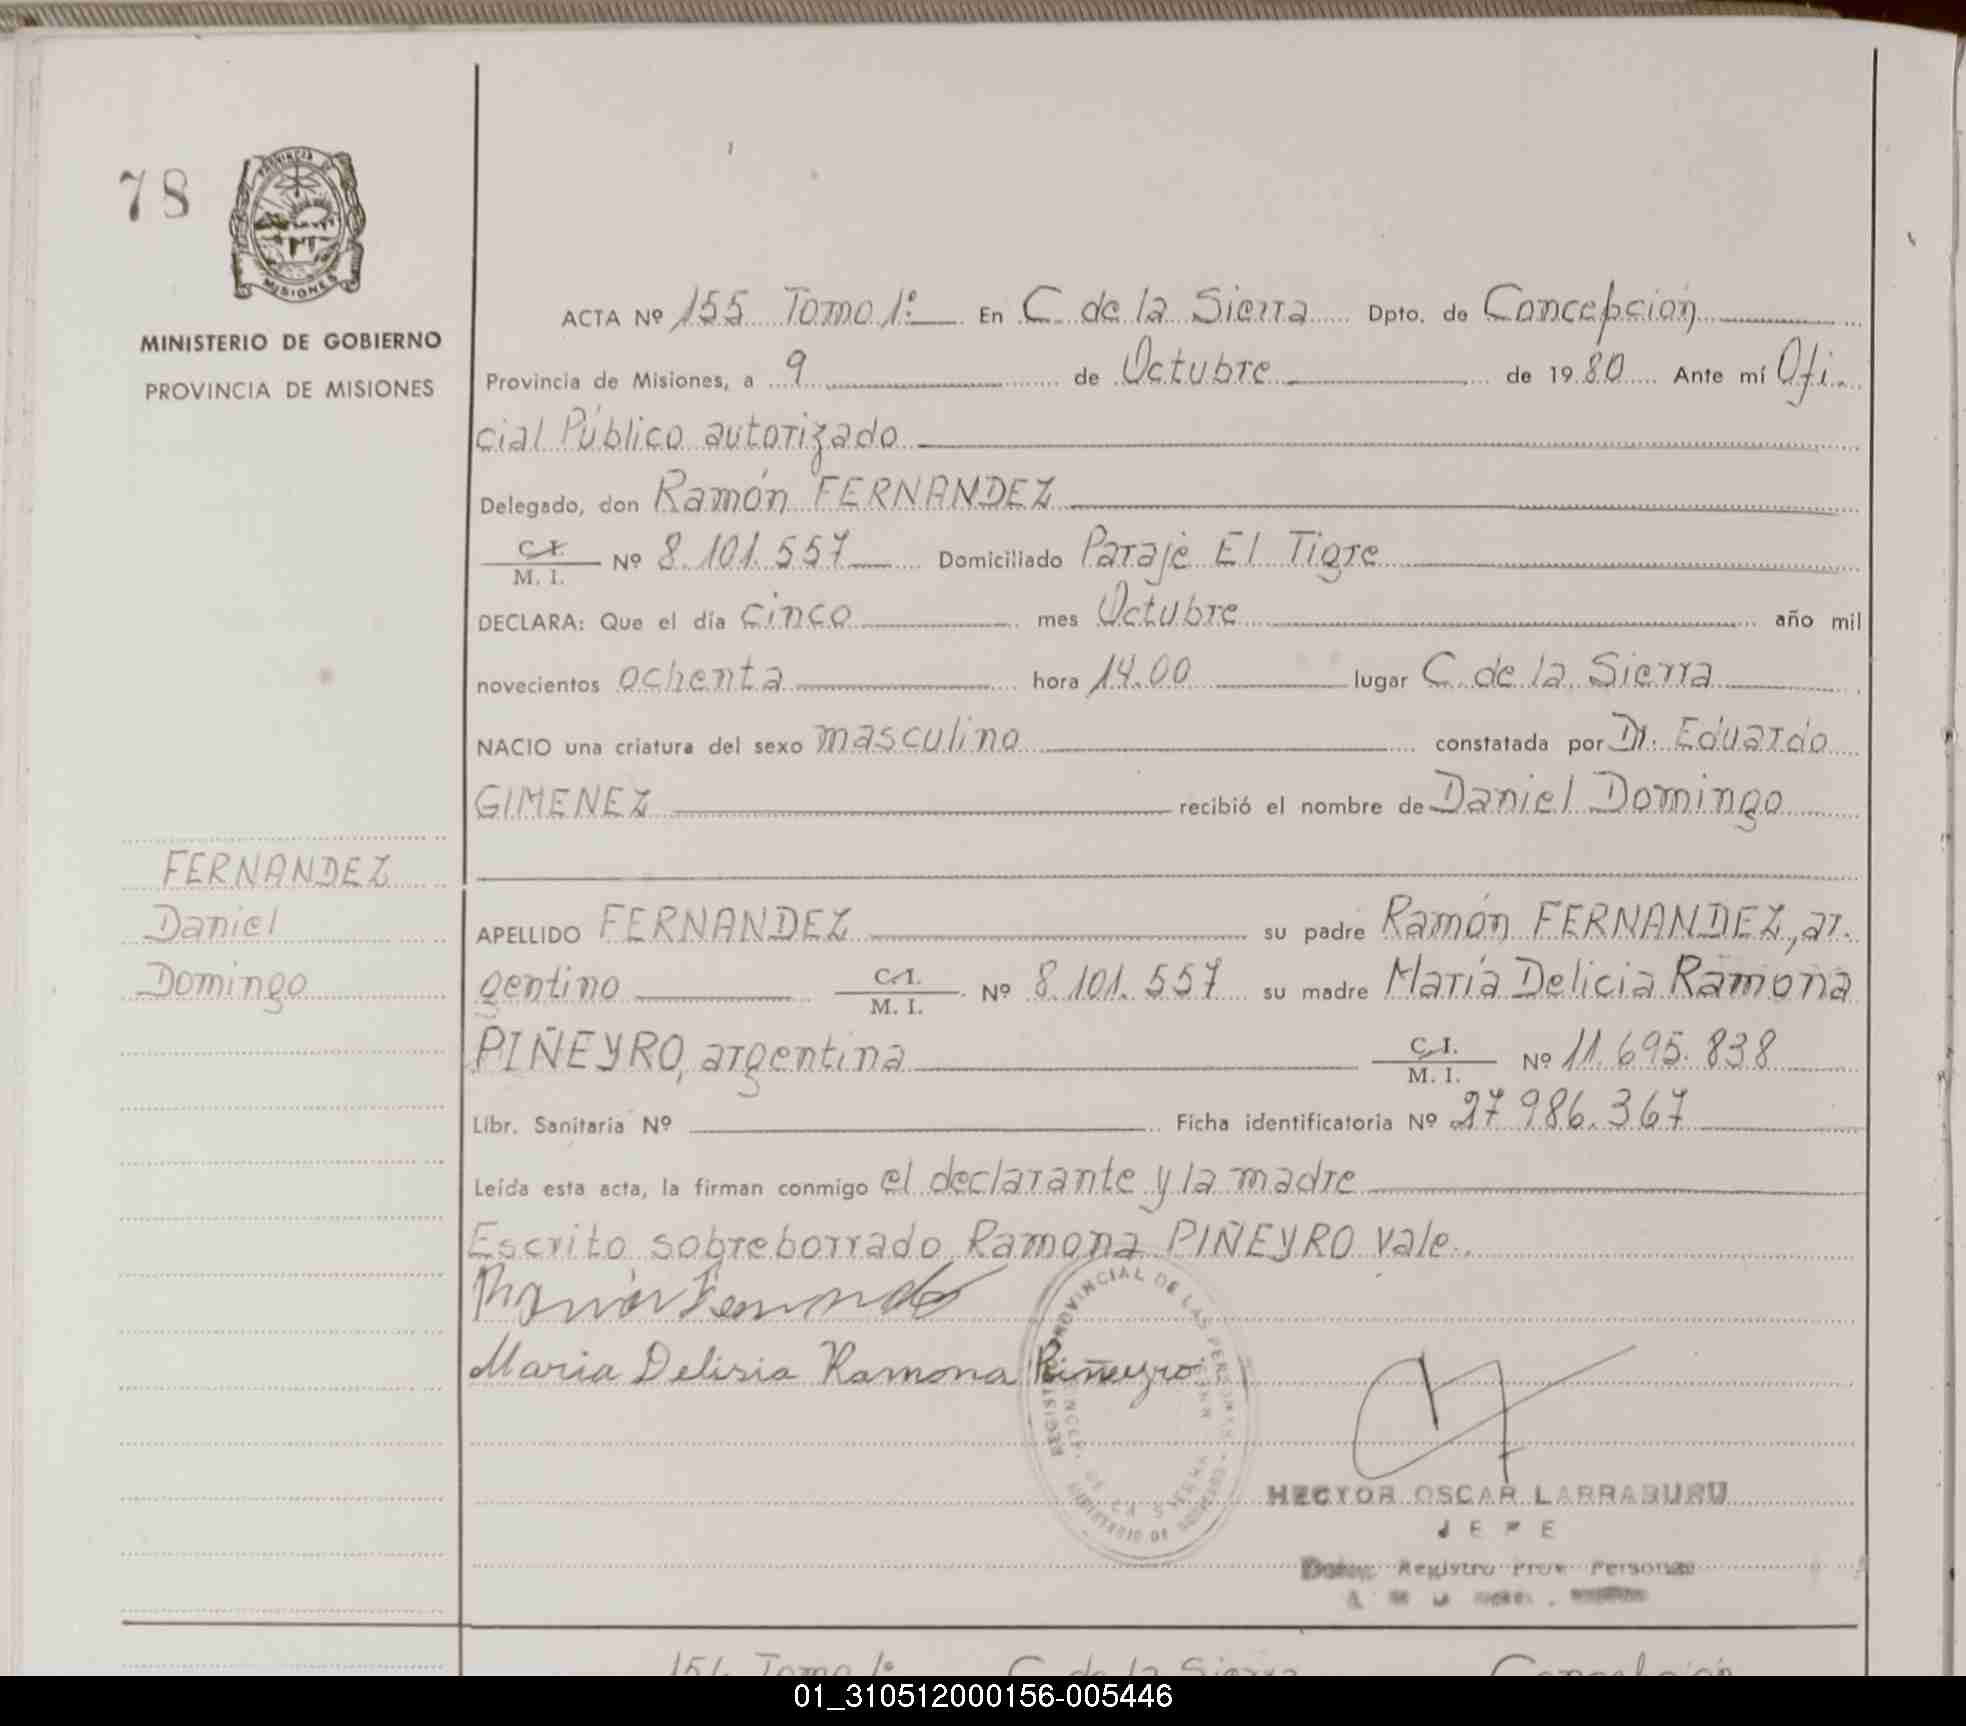 78
PROVINCIA DE
MISIONES
MINISTERIO DE GOBIERNO
PROVINCIA DE MISIONES
ACTA Nº 155 Tomo 1º En C. de la Sierra Dpto. de Concepción
Provincia de Misiones, a 9 de Octubre de 1980 Ante mí Ofi-
cial Público autorizado
Delegado, don Ramón FERNANDEZ
C. I. / M. I. Nº 8.101.557 Domiciliado Paraje El Tigre
DECLARA: Que el día cinco mes Octubre año mil
novecientos ochenta hora 14.00 lugar C. de la Sierra
NACIO una criatura del sexo masculino constatada por Dr. Eduardo
GIMENEZ recibió el nombre de Daniel Domingo
FERNANDEZ
Daniel
Domingo
APELLIDO FERNANDEZ su padre Ramón FERNANDEZ, ar-
gentino C. I. / M. I. Nº 8.101.557 su madre María Delicia Ramona
PIÑEYRO, argentina C. I. / M. I. Nº 11.695.838
Libr. Sanitaria Nº Ficha identificatoria Nº 27.986.367
Leída esta acta, la firman conmigo el declarante y la madre
Escrito sobreborrado Ramona PIÑEYRO vale.
Ramón Fernandez
Maria Delisia Ramona Piñeyro
REGISTRO PROVINCIAL DE LAS PERSONAS
DE LA SIERRA
MINISTERIO DE GOBIERNO
HECTOR OSCAR LARRABURU
JEFE
Registro Prov Personas
Tomo 1º C. de la Sierra Concepción
01_310512000156-005446